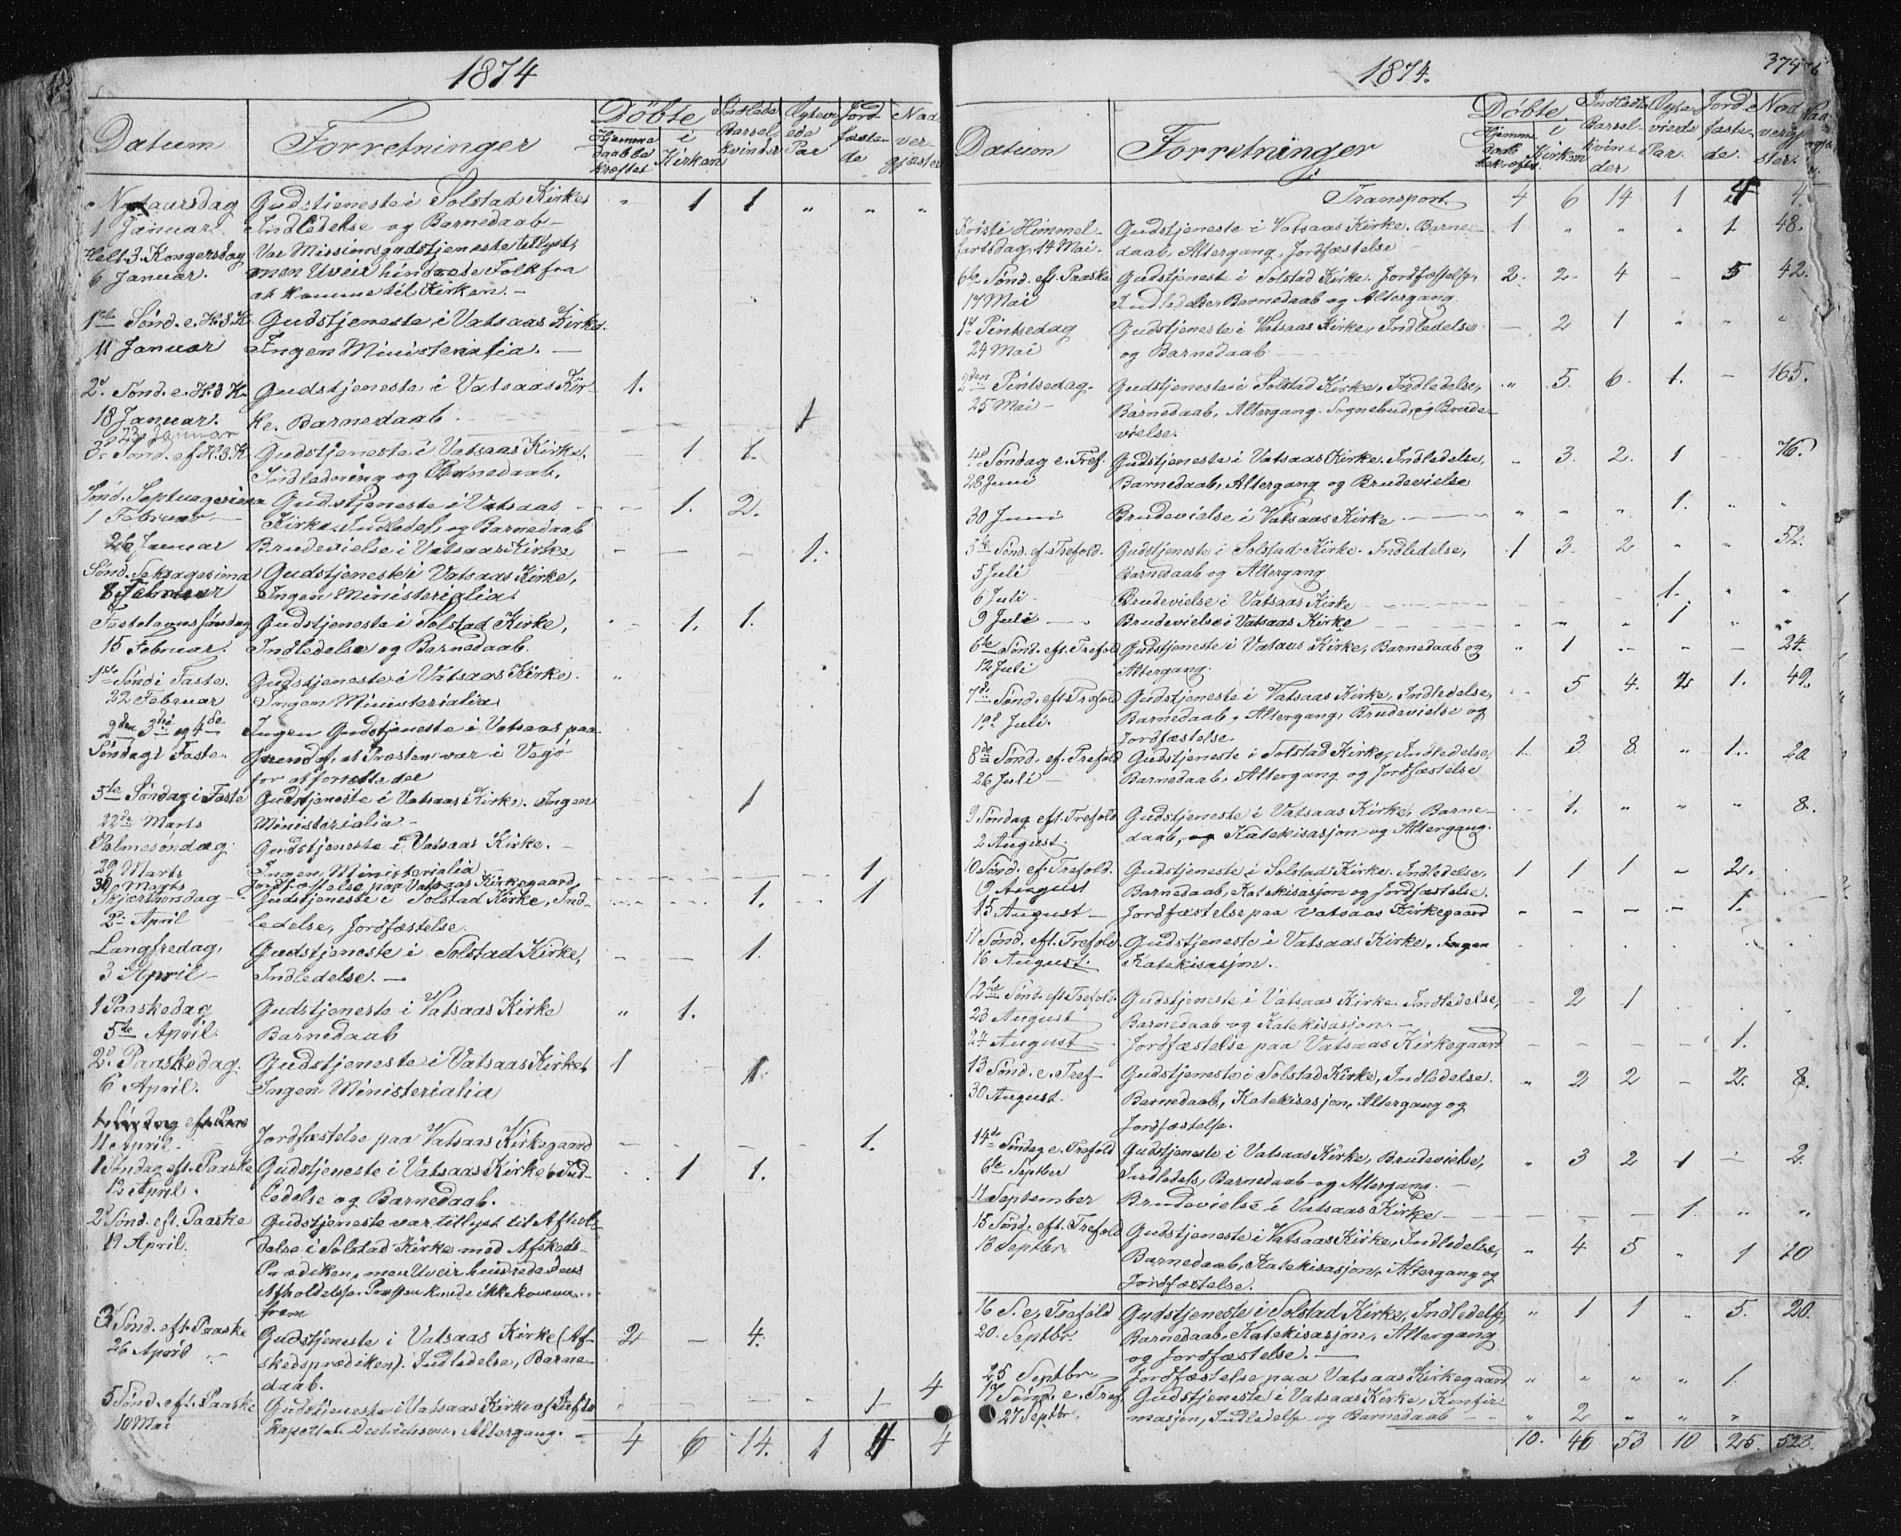 1874
Datum Forretninger Döbte Indledte Barselkvinder Ægteviede Par Jordfæstede Nadvergjæster
Hjemmedaabbekræftet i Kirken
Nytaarsdag Gudstjeneste i Solstad Kirke, " 1 1 " " "
1 Januar. Indledelse og Barnedaab
Hell. 3. Kongersdag Var Missionsgudstjeneste tillyst,
6 Januar. men Uveir hindrede Folk fra
at komme til Kirken. -
1ste Sönd. e. H. 3 K. Gudstjeneste i Vatsaas Kirke.
11 Januar Ingen Ministerialia. -
2d. Sönd. e. H. 3 K. Gudstjeneste i Vatsaas Kir- 1.
18 Januar. ke. Barnedaab 1
23 Januar
3d. Sönd. ef. H. 3 K. Gudstjeneste i Vatsaas Kirke. - 1 1.
Indledning og Barnedaab.
Sönd. Septuagesima Gudstjeneste i Vatsaas - - 1. 2.
1 Februar - Kirke, Indledel. og Barnedaab
26 Januar Brudevielse i Vatsaas Kirke - - - 1.
Sönd. Seksagesima Gudstjeneste i Vatsaas Kirke,
8 Februar Ingen Ministerialia
Fastelavns söndag Gudstjeneste i Solstad Kirke, - 1. 1.
15 Februar. Indledelse og Barnedaab.
1ste Sönd i Faste. Gudstjeneste i Vatsaas Kirke. "
22 Februar Ingen Ministerialia
2den 3die og 4de Ingen Gudstjeneste i Vatsaas paa
Söndag i Faste. Grund af, at Præsten var i Vegö
for at forrette der
5te Söndag i Faste Gudstjeneste i Vatsaas Kirke. Ingen 1
22de Marts Ministerialia -
Palmesöndag. Gudstjeneste i Vatsaas Kirke. -
29 Marts Ingen Ministerialia
30 Marts Jordfæstelse paa Vatsaas Kirkegaard - - - - 1
Skjærthorsdag - Gudstjeneste i Solstad Kirke, Ind- 1. 1
2d. April - ledelse, Jordfæstelse.
Langfredag, Gudstjeneste i Solstad Kirke, - - 1.
3 April - Indledelse. -
1 Paaskedag Gudstjeneste i Vatsaas Kirke " 1.
5te April. Barnedaab
2d. Paaskedag. Gudstjeneste i Vatsaas Kirke, 1 1.
6 April. Ingen Ministerialia
11 April - Jordfæstelse paa Vatsaas Kirkegaard - - - - 1.
1 Söndag eft. Paaske Gudstjeneste i Vatsaas Kirke, Ind- . 1 1.
12 April. ledelse og Barnedaab.
2d Sönd. eft. Paaske Gudstjeneste var tillyst til Afhol-
19 April. delse i Solstad Kirke med Afskeds-
Prædiken, men Uveir hindrede dens
Afholdelse. Præsten kunde ikke komme
frem
3d Sönd. eft. Paaske Gudstjeneste i Vatsaas Kirke (Af- 2 - 4.
26 April - skedsprædiken). Indledelse, Barne-
daab.
5 Sönd. eft. Paaske Gudstjeneste i Vatsaas Kirke af Resid. " - - - 1 4
10 Mai Kapellan Altergang. -
4 6 14. 1 4 4
1874. 374
Datum Forretninger Döbte Indledte Barselkvinder Ægteviede Par. Jordfæstede. Nadvergjæster.
Hjemmedaab bekræftet i Kirken
Transport. 4 6 14 1 4 4
Kristi Himmel- Gudstjeneste i Vatsaas Kirke. Barne- 1 " " " 1 48.
fartsdag, 14 Mai. daab, Altergang, Jordfæstelse
6te Sönd. eft. Paaske Gudstjeneste i Solstad Kirke. Jordfæstelse, 2. 2. 4 - 5 42.
17 Mai Indledelse, Barnedaab og Altergang.
1st Pintsedag Gudstjeneste i Vatsaas Kirke, Indledelse - 2 1 " " "
24 Mai og Barnedaab
2den Pintsedag. Gudstjeneste i Solstad Kirke, Indledelse, " 5. 6. 1. - 165.
25 Mai - Barnedaab, Altergang. Sognebud, og Brude-
vielse.
4d. Söndag e. Tref. Gudstjeneste i Vatsaas Kirke. Indledelse, " 3. 2. 1 - 76.
28 Juni Barnedaab, Altergang og Brudevielse
30 Juni Brudevielse i Vatsaas Kirke " " " 1. " "
5te Sönd. ef. Trefold. Gudstjeneste i Solstad Kirke. Indledelse, 1 3. 2 " " 52.
5 Juli Barnedaab og Altergang
6 Juli - Brudevielse i Vatsaas Kirke 1. " "
9 Juli - Brudevielse i Vatsaas Kirke - - - 1 " "
6te Sönd. eft. Trefold Gudstjeneste i Vatsaas Kirke, Barnedaab og " 1 - - - 24.
12 Juli Altergang.
7de Sönd. eft Trefold Gudstjeneste i Vatsaas Kirke, Indledelse, 5 4. 2 1. 49.
19d Juli. Barnedaab, Altergang, Brudevielse og
Jordfæstelse.
8de Sönd. ef. Trefold Gudstjeneste i Solstad Kirke, Indledelse, 1. 3 8 " 1. 20
26 Juli - Barnedaab, Altergang og Jordfæstelse
9. Söndag eft. Trefold Gudstjeneste i Vatsaas Kirke, Barne- - 1. " " " 8.
2 August. daab, og Katekisasjon og Altergang.
10 Sönd. ef. Trefold. Gudstjeneste i Solstad Kirke. Indledelse, 1 1 1 - 2.
9 August Barnedaab, Katekisasjon og Jordfæstelse.
15 August - Jordfæstelse paa Vatsaas Kirkegaard - - - - 1.
11 Sönd. eft. Trefold. Gudstjeneste i Vatsaas Kirke. Ingen
16 August. Katekisasjon.
12te Sönd. eft Trefold. Gudstjeneste i Vatsaas Kirke. Indledelse, - 2 1
23 August Barnedaab og Katekisasjon. -
24 August - Jordfæstelse paa Vatsaas Kirkegaard - - - - 1.
13 Sönd. e. Tref - Gudstjeneste i Solstad Kirke, Indledelse. " 2 2 - 2. 8.
30 August. Barnedaab, Katekisasjon, Altergang og
Jordfæstelse.
14de Söndag e. Trefold Gudstjeneste i Vatsaas Kirke, Brudevielse, " 3 2 1 - 2.
6te Septber Indledels, Barnedaab og Altergang. -
11 September Brudevielse i Vatsaas Kirke - - - - 1 " "
15 Sönd. eft. Trefold Gudstjeneste i Vatsaas Kirke, Indledelse, " 4 5 " 1 20
13 Septbr. Barnedaab, Katekisasjon, Altergang og
Jordfæstelse.
16 S. e. Trefold Gudstjeneste i Solstad Kirke, Indledelse, " 1 1 . 5. 20.
20. Septbr. Barnedaab, Katekisasjon, Altergang
og Jordfæstelse. -
25 Septbr Jordfæstelse paa Vatsaas Kirkegaard " " " " 1.
17 Sönd. e. Tref. Gudstjeneste i Vatsaas Kirke, Konfir-
27 Septbr. masjon, Indledelse og Barnedaab - - " 2 " " "
10. 46 53 10 25. 523.